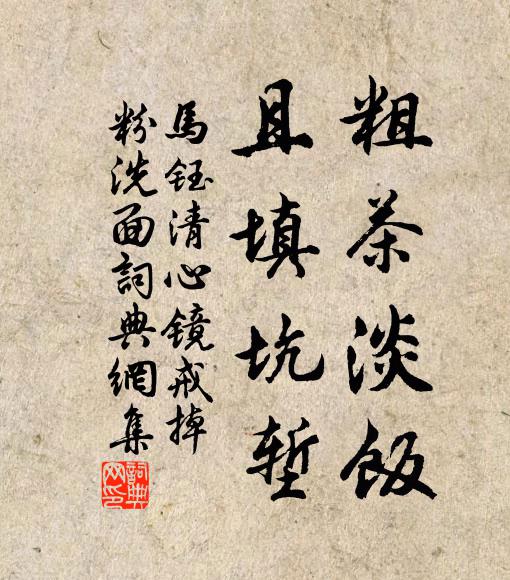 粗茶淡飯
且填坑塹
馬鈺清心镜戒掉
粉洗面詞典網集
詞典网印